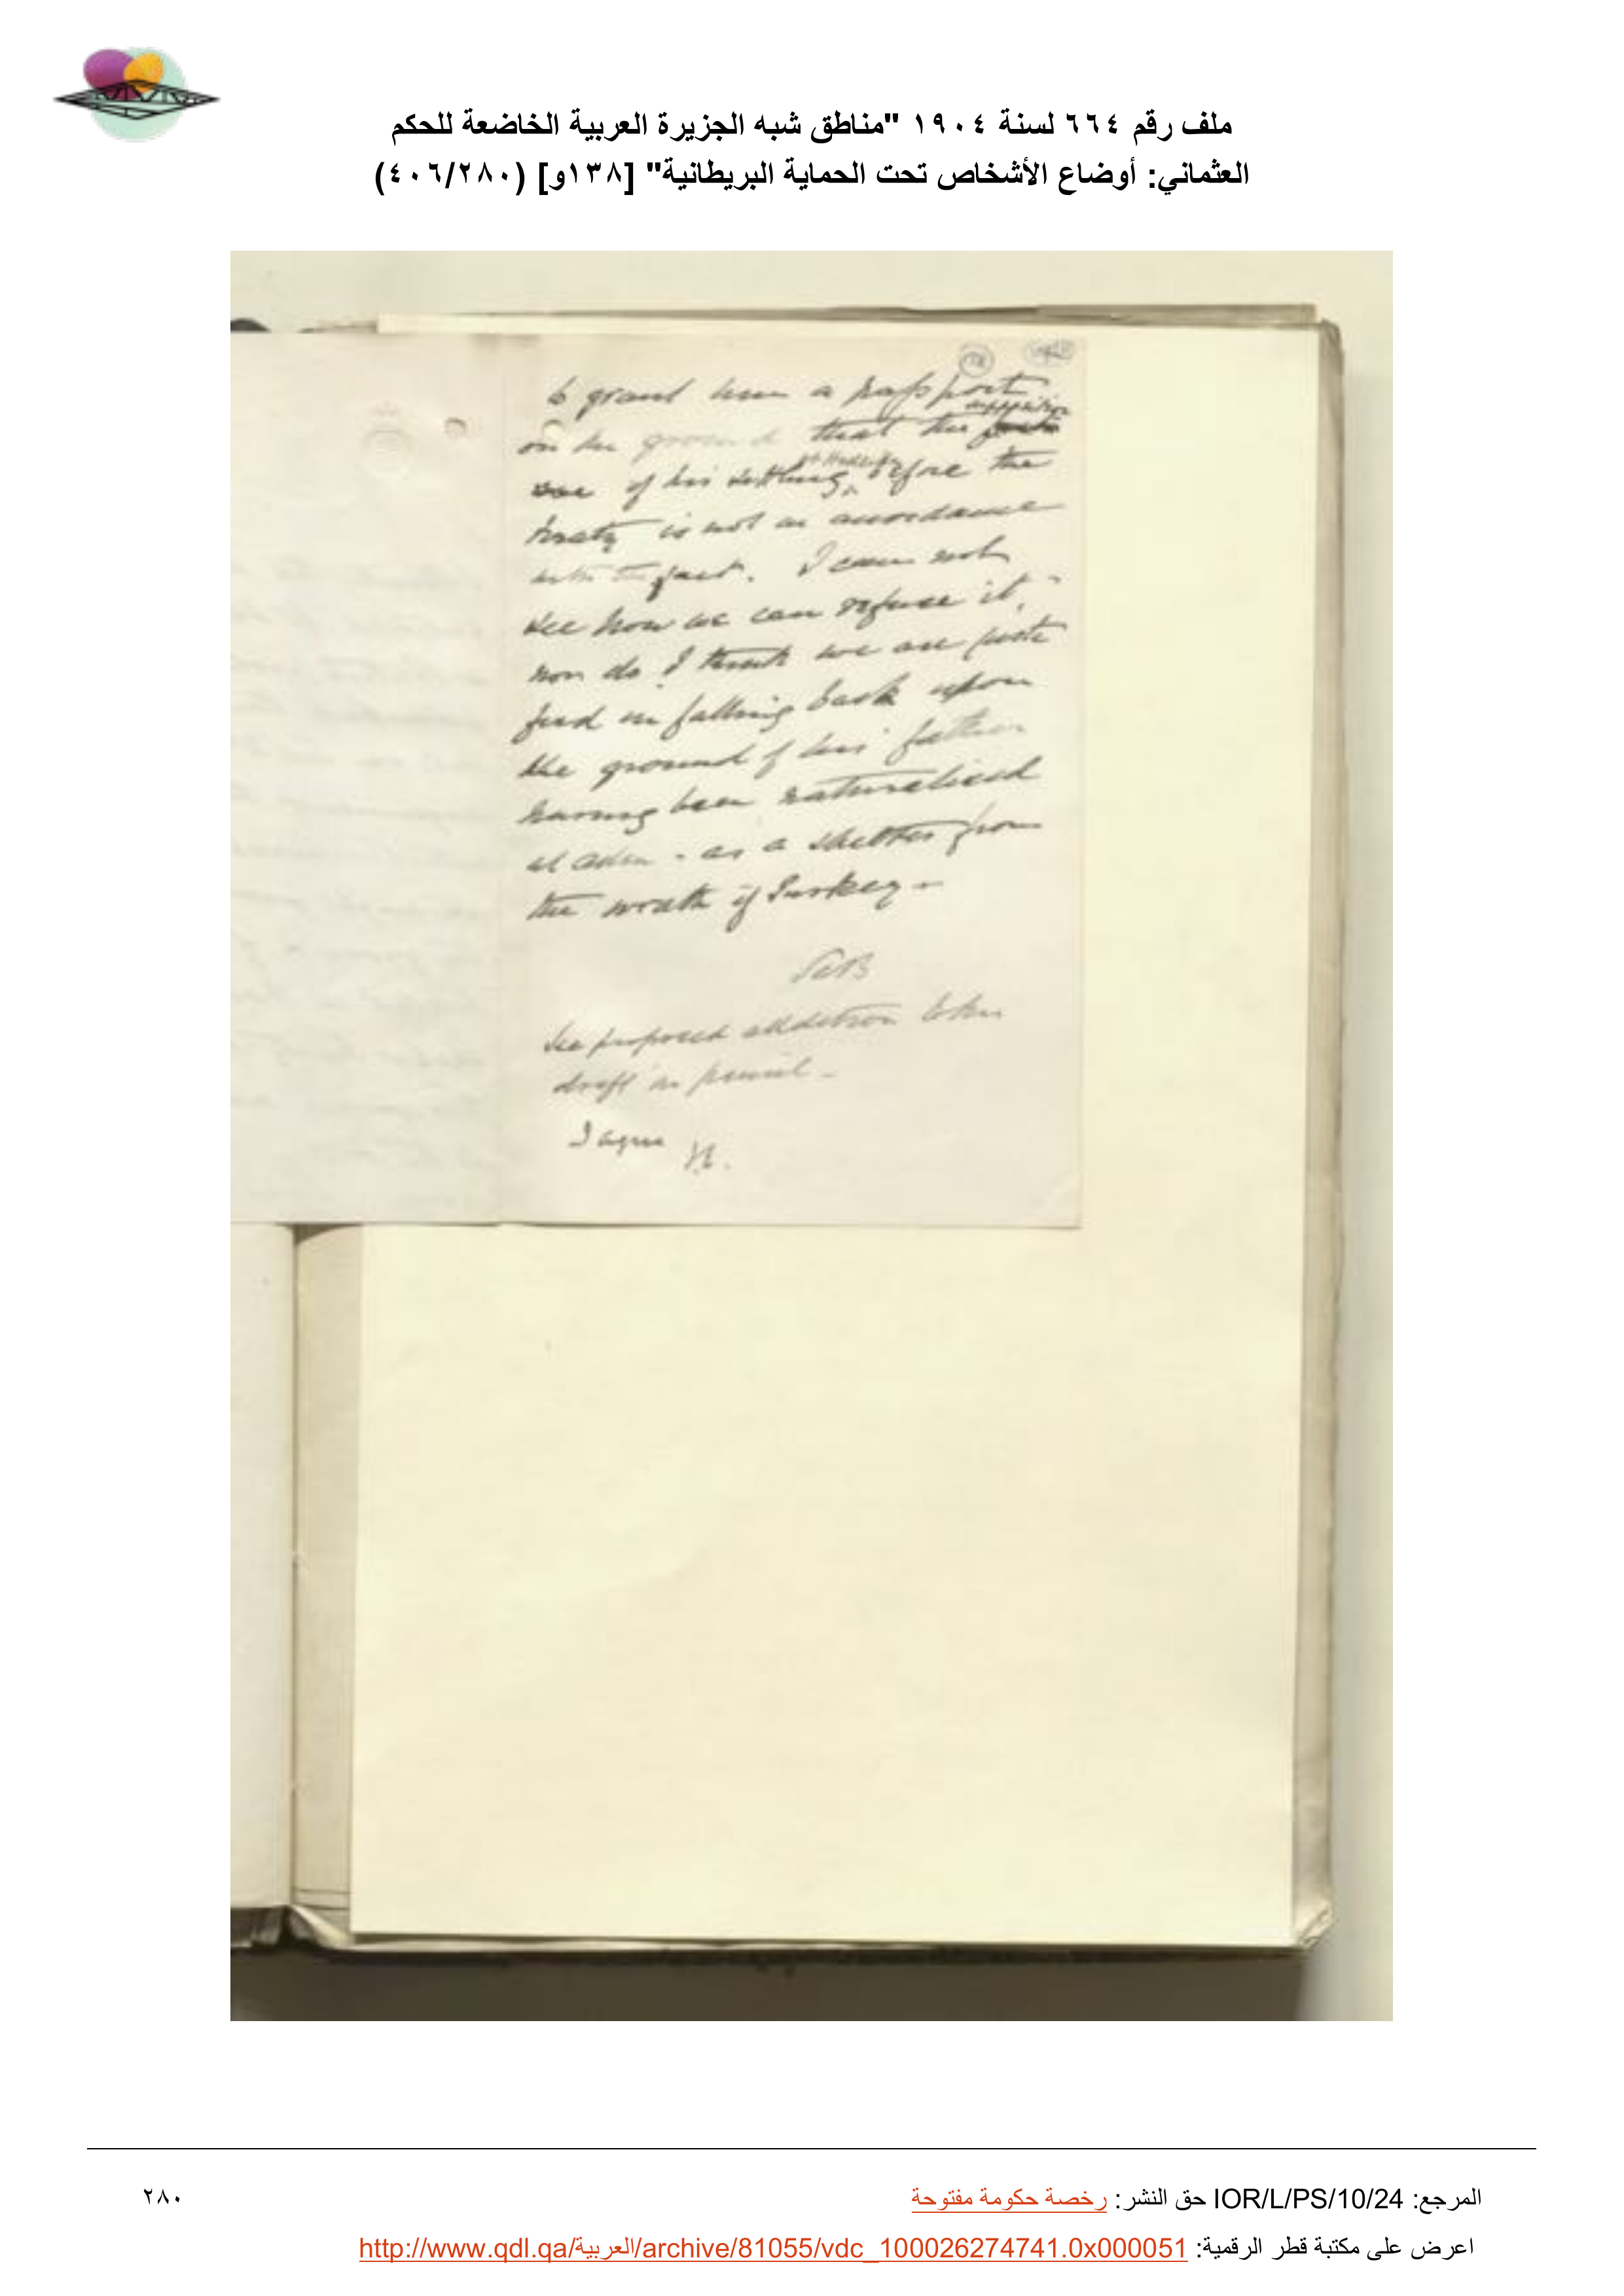 ملف رقم ٦٦٤ لسنة ١٩٠٤ "مناطق شبه الجزيرة العربية الخاضعة للحكم
العثماني: أوضاع الأشخاص تحت الحماية البريطانية" [١٣٨و] (٤٠٦/٢٨٠)
to grant him a passport
supposition
on the ground that the
of his settling before the
treaty is not in accordance
with the fact. I can not
see how we can refuse it,
nor do I think we are justi
fied in falling back upon
the ground of his father
having been naturalised
at Aden - as a shelter from
the wrath of Turkey -
See proposed addition to this
draft in pencil -
I agree
H.
المرجع: IOR/L/PS/10/24 حق النشر: رخصة حكومة مفتوحة
٢٨٠
اعرض على مكتبة قطر الرقمية: http://www.qdl.qa/العربية/archive/81055/vdc_100026274741.0x000051